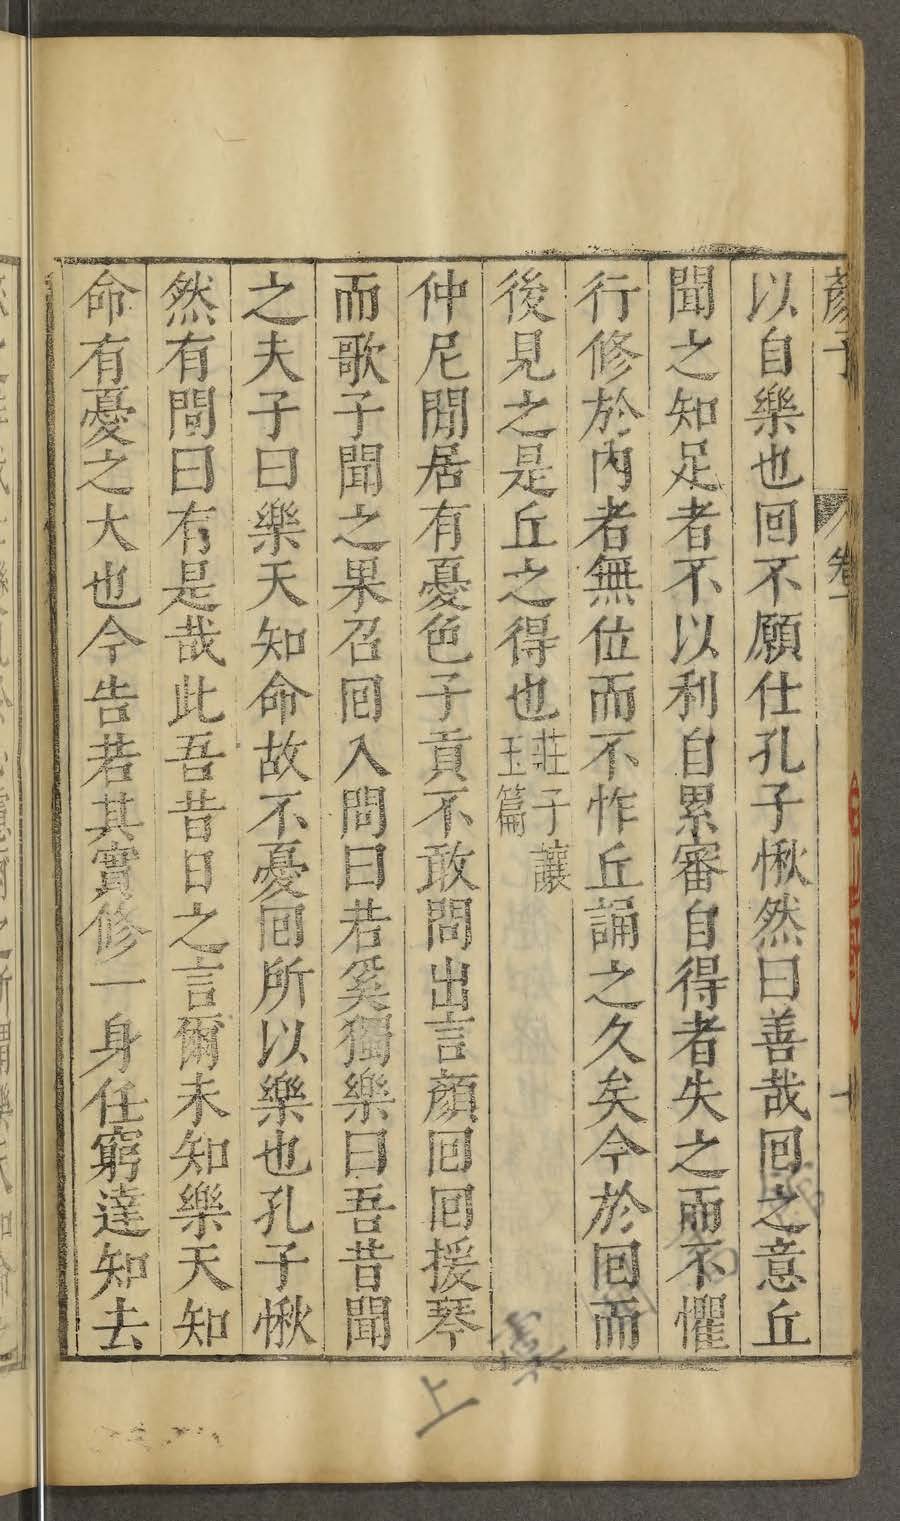 顏子 卷一 十
以自樂也回不願仕孔子愀然曰善哉回之意丘
聞之知足者不以利自累審自得者失之而不懼
行修於內者無位而不怍丘誦之久矣今於回而
後見之是丘之得也莊子讓王篇
仲尼閒居有憂色子貢不敢問出言顏回回援琴
而歌子聞之果召回入問曰若奚獨樂曰吾昔聞
之夫子曰樂天知命故不憂回所以樂也孔子愀
然有間曰有是哉此吾昔日之言爾未知樂天知
命有憂之大也今告若其實修一身任窮達知去